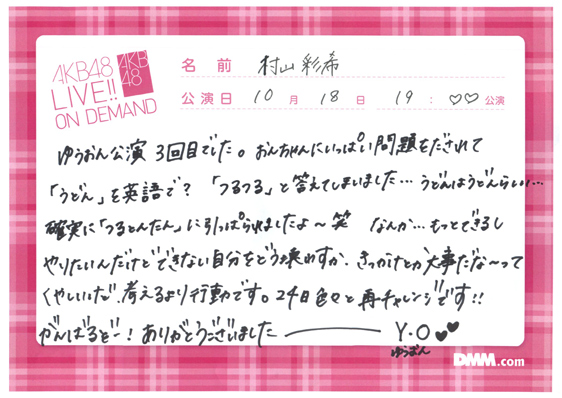 AKB48
LIVE!!
ON DEMAND
AKB
48
名 前 村山彩希
公演日 10 月 18 日 19 : ♡♡ 公演
ゆうおん公演 3回目でした。おんちゃんにいっぱい問題をだされて
「うどん」を英語で? 「つるつる」と答えてしまいました… うどんはうどんらしい…
確実に「つるとんたん」に引っぱられましたよ〜笑 なんか… もっとできるし
やりたいんだけどできない自分をどう壊めすか、きっかけとか大事だな〜って
くやしいけど、考えるより行動です。24日色々と再チャレンジです!!
がんばるぞー! ありがとうございました ― Y.O♥♥
ゆうおん
DMM.com